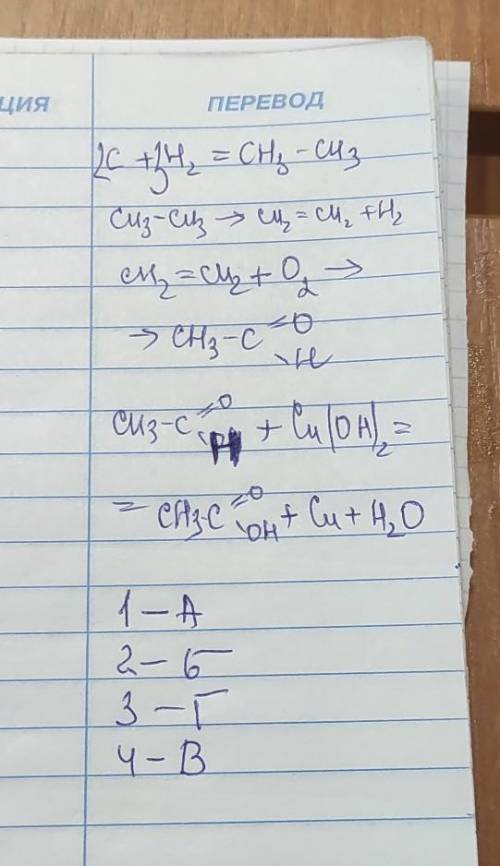 ЦИЯ ПЕРЕВОД
2C + 3H₂ = CH₃ – CH₃
CH₃–CH₃ → CH₂ = CH₂ + H₂
CH₂ = CH₂ + O₂ →
→ CH₃ – C =O \H
CH₃–C =O \H + Cu(OH)₂ =
= CH₃C =O \OH + Cu + H₂O
1 – А
2 – б
3 – Г
4 – В